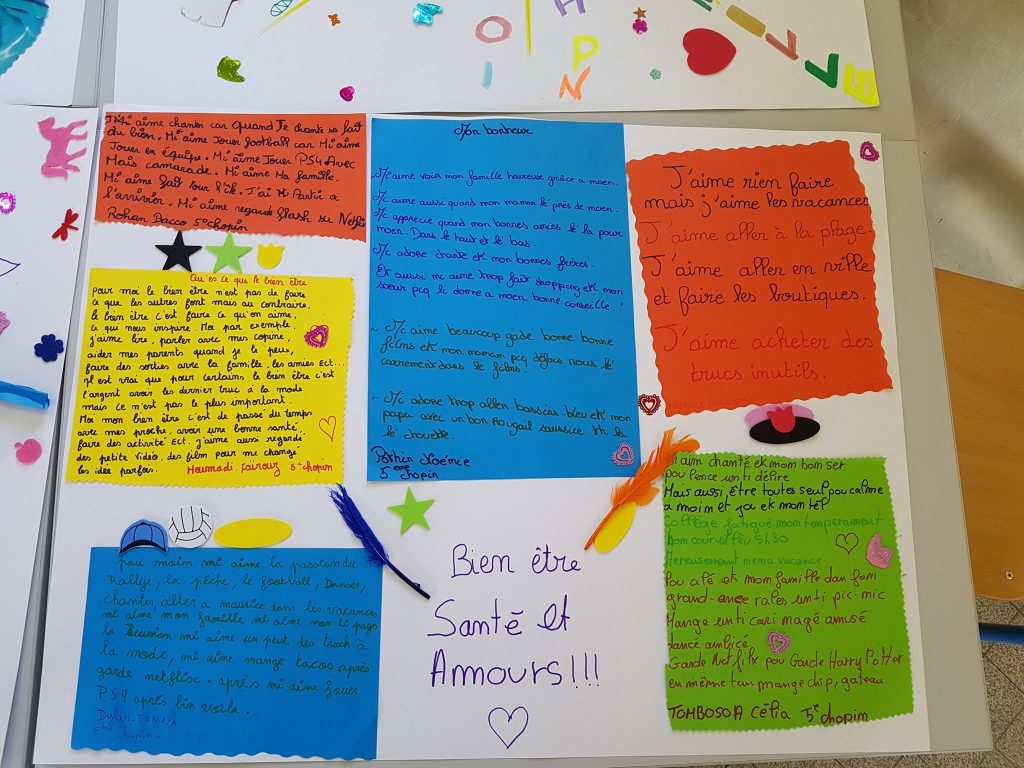 O
I
H
P
N
L
I
V
E
J Mi aime chanter car Quand Je chante sa fait
du bien. Mi aime Jouer football car Mi aime
Jouer en équipe. Mi aime Jouer PS4 Avec
Mais camarade. Mi aime Ma famille.
Mi aime fait tour l'île. J'ai Partir a
l'avirion. Mi aime regarde flash su Netflix
Rohan Bacco 5e chopin
Qu'es ce que le bien être
pour moi le bien être n'est pas de faire
ce que les autres font mais au contraire,
le bien être c'est faire ce qu'on aime,
ce qui nous inspire. Moi par exemple,
j'aime lire, parler avec mes copine,
aider mes parents quand je le peux,
faire des sorties avec la famille, les amies Ect...
Il est vrai que pour certains le bien être c'est
l'argent avoir les dernier truc à la mode
mais ce n'est pas le plus important.
Moi mon bien être c'est de passé du temps
avec mes proche, avoir une bonne santé,
faire des activité Ect. j'aime aussi regardé
des petite vidéo, des film pour me changé
les idée parfois. Houmadi. fairouz 5e chopin
pou moin mi aime la passion du
Rallye, la pêche, le football, Danser,
chanter aller a maurice dans les vacances
mi aime mon famille mi aime mon ti pays
la Reunion mi aime un peut des truck à
la mode, mi aime mange tacos après
garde netflisc. après mi aime jouer
PS4 après bin voila.
Dylan TAMAYA
5ème chopin.
Mon bonheur
Mi aime voir mon famille heureuse grâce a moen.
Mi aime aussi quand mon maman lé près de moen.
Mi apprecie quand mon bonnes amies lé la pour
moen. Dans le haut et le bas.
Mi adore chante ek mon bonnes frères.
Et aussi mi aime trop fait shopping ek mon
soeur pcq li donne a moen bonne conseille.
~ Mi aime beaucoup gade bonne bonne
films ek mon maman pcq défois nous lé
carrément dans le films!
~ Mi adore trop allen bassins-bleu ek mon
papa avec un bon rougail saussice Ah la
lé chouette.
Noémie
5ème chopin
J'aime rien faire
mais j'aime les vacances
J'aime aller à la plage.
J'aime aller en ville
et faire les boutiques.
J'aime acheter des
trucs inutils.
Mi aim chanté ek mom bom ser
pou lence un ti défire
Mais aussi, être toutes seul pou calme
a moim et jou ek mom tél
Collège fatiqué mom temperament
Dom cour et lév 5h30
Hereusement néna vacance
Pou alé ek mom famille dan fon
grand-anse rales un ti pic-nic
Mange un ti cari magé amusé
dance
Garde Netflix pou Garde Harry Potter
en même tan mange chip, gateau
TOMBOSOA Célia 5e chopim
Bien être
Santé et
Amours!!!